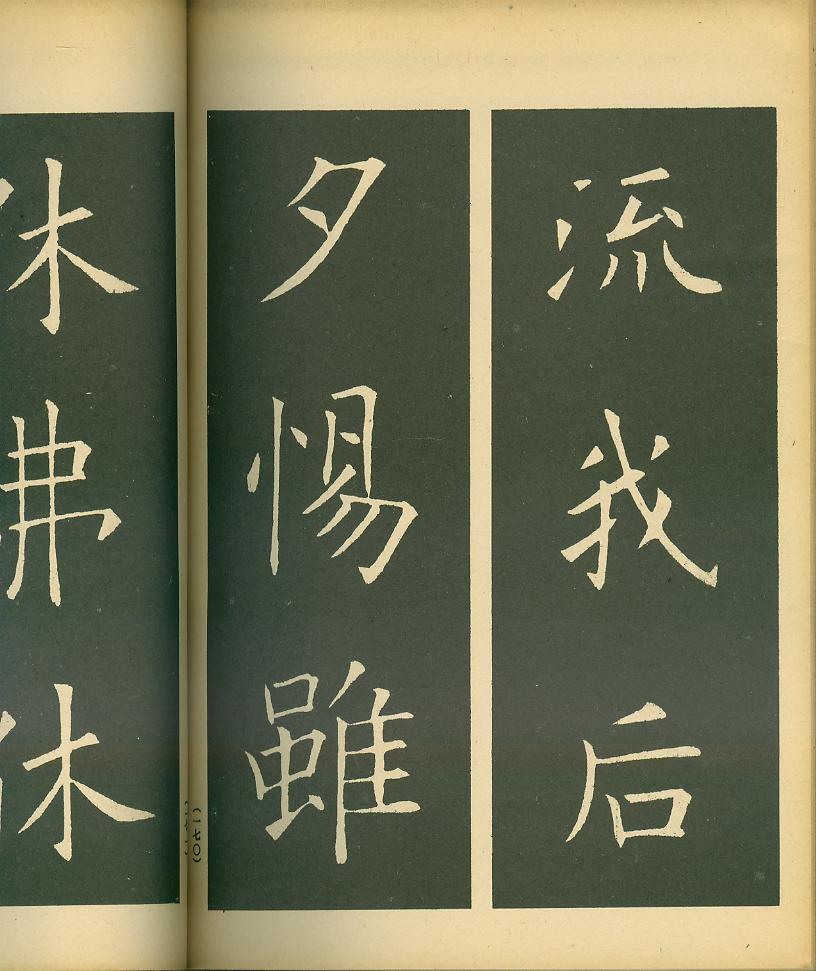 流我后
夕惕雖
休弗休
(一四〇)